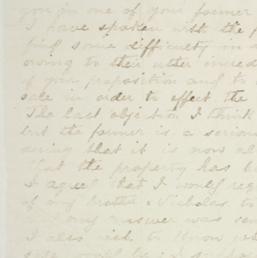 you in one of your former
I have spoken with the p
find some difficulty in
owing to their utter
of your proposition and to
sale in order to effect the
The last objection I think
but the former is a serious
that it is now al
that the property has b
I agree that I would req
of my brother Nicholas to
my answer was
I also wish to know